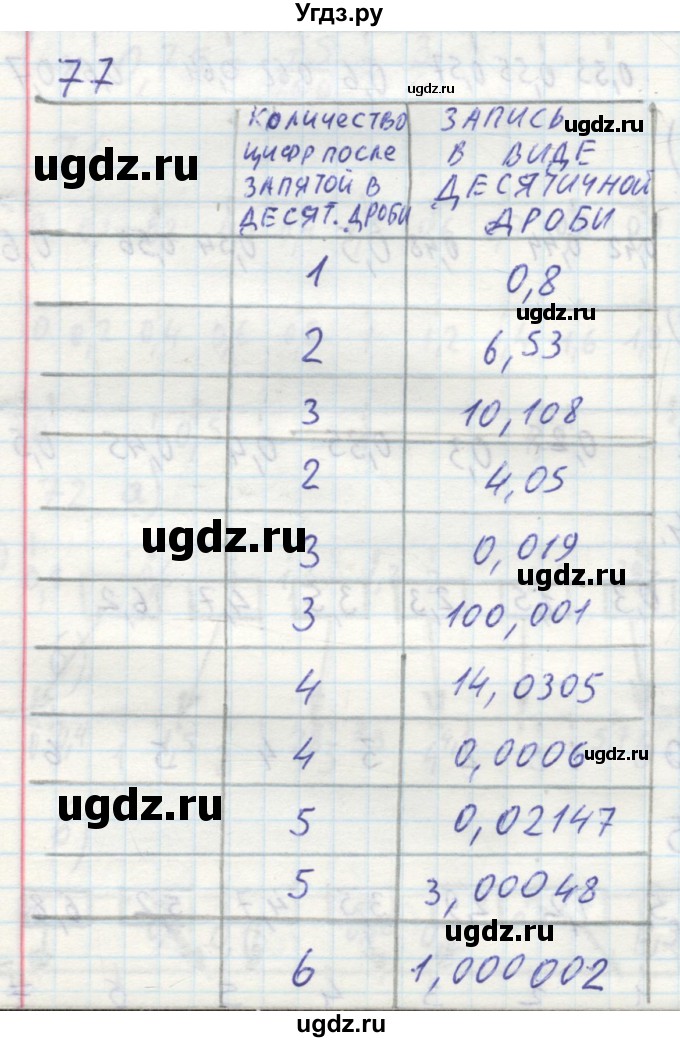 Угдз.ру
77
ugdz.ru
КОЛИЧЕСТВО ЦИФР ПОСЛЕ ЗАПЯТОЙ В ДЕСЯТ. ДРОБИ
ЗАПИСЬ В ВИДЕ ДЕСЯТИЧНОЙ ДРОБИ
ugdz.ru
ugdz.ru
1 0,8
ugdz.ru
2 6,53
3 10,108
2 4,05
ugdz.ru
3 0,019
ugdz.ru
3 100,001
4 14,0305
4 0,0006
ugdz.ru
ugdz.ru
5 0,02147
5 3,00048
ugdz.ru
6 1,000002
ugdz.ru